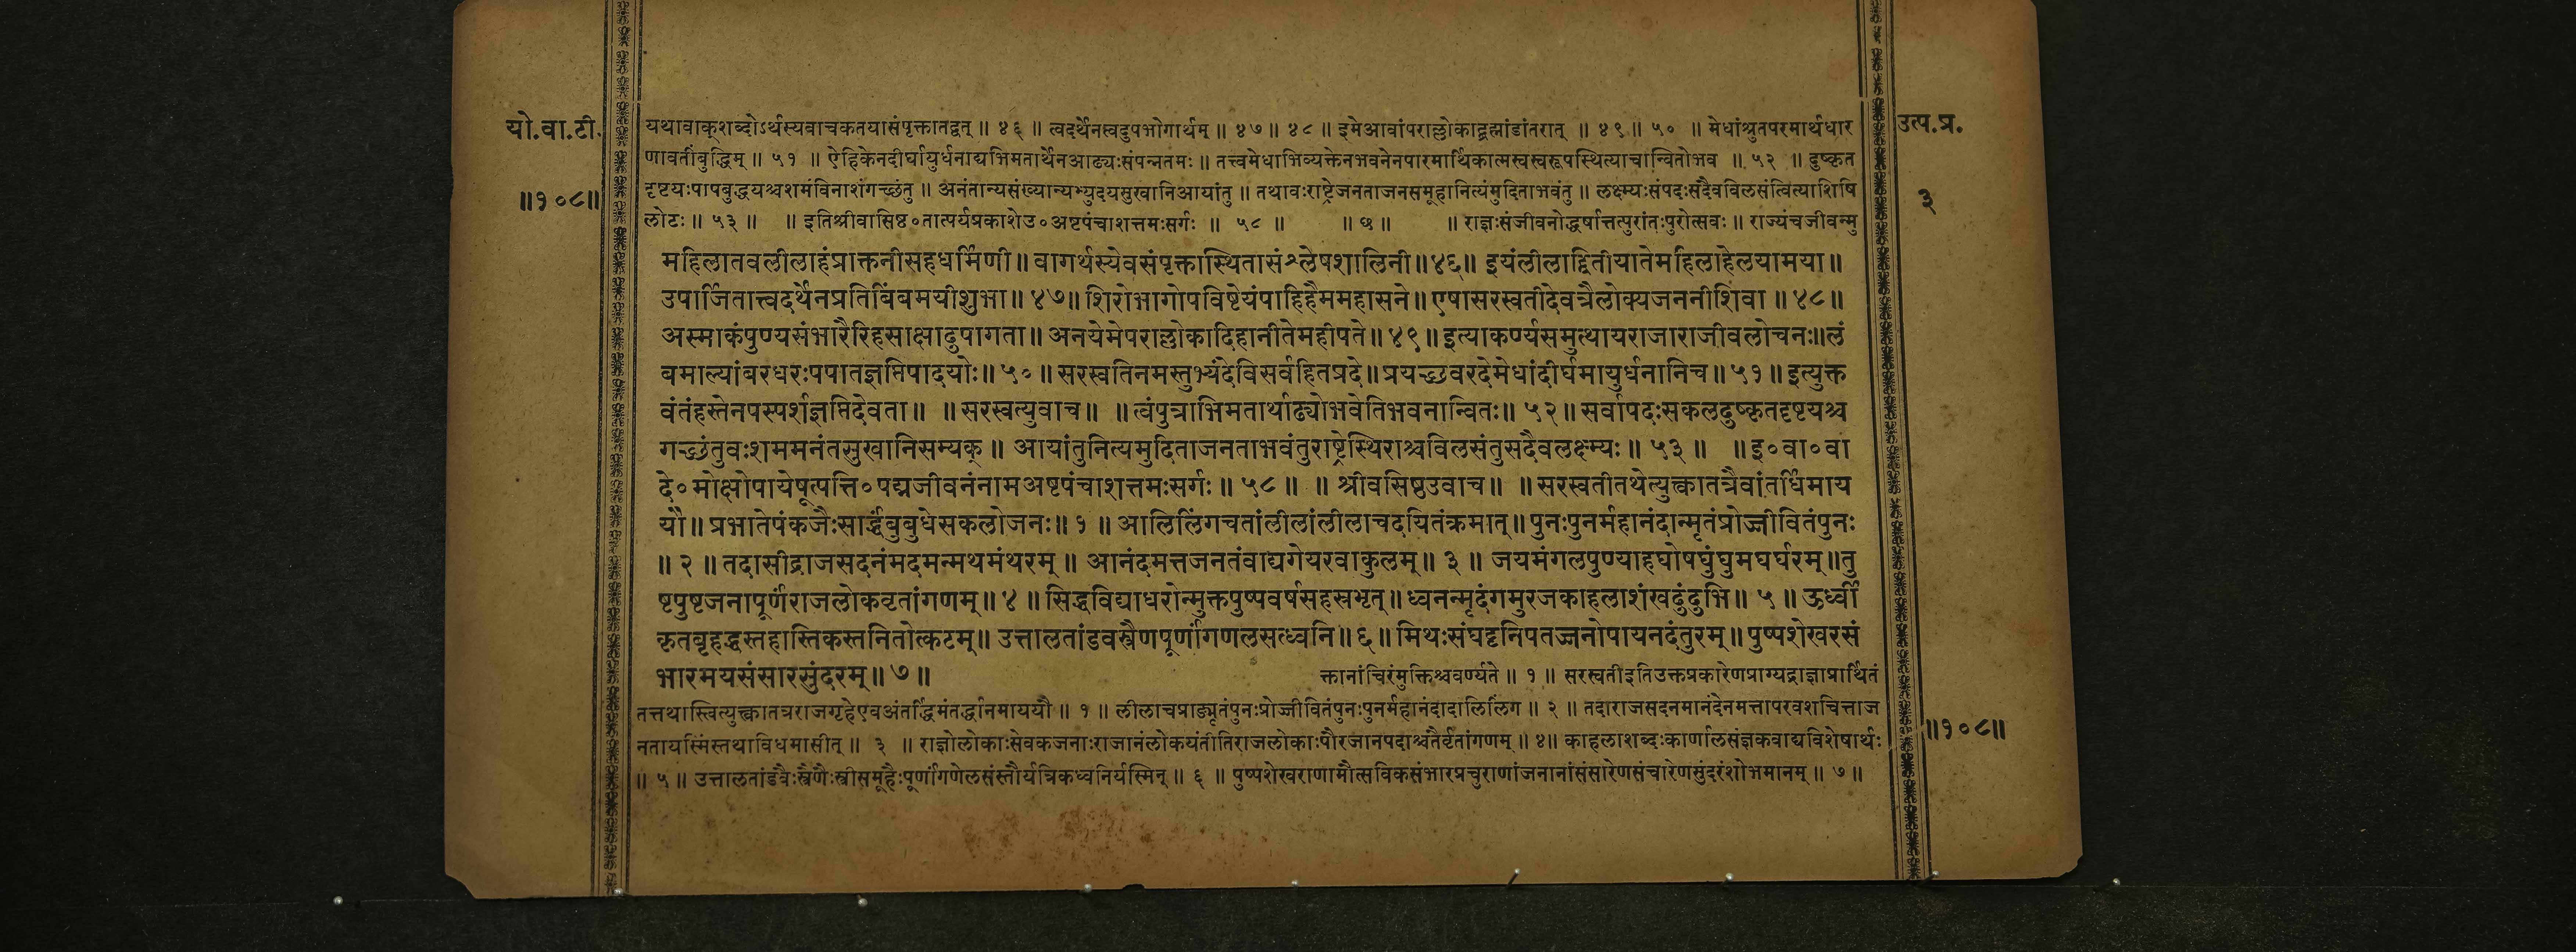 यो.वा.टी.
॥१०८॥
यथावाक्शब्दोऽर्थस्यवाचकतयासंपृक्तातद्वत् ॥ ४६ ॥ त्वदर्थेनत्वदुपभोगार्थम् ॥ ४७ ॥ ४८ ॥ इमेआवांपराल्लोकाद्ब्रह्मांडांतरात् ॥ ४९ ॥ ५० ॥ मेधांश्रुतपरमार्थधार
णावतींबुद्धिम् ॥ ५१ ॥ ऐहिकेनदीर्घायुर्धनाद्यभिमतार्थेनआढ्यःसंपन्नतमः ॥ तत्त्वमेधाभिव्यक्तेनभवनेनपारमार्थिकात्मस्वस्वरूपस्थित्याचान्वितोभव ॥ ५२ ॥ दुष्कृत
दृष्टयःपापबुद्धयश्चशमंविनाशंगच्छंतु ॥ अनंतान्यसंख्यान्यभ्युदयसुखानिआयांतु ॥ तथावःराष्ट्रेजनताजनसमूहानित्यंमुदिताभवंतु ॥ लक्ष्म्यःसंपदःसदैवविलसंत्वित्याशिषि
लोटः ॥ ५३ ॥ ॥ इतिश्रीवासिष्ठ०तात्पर्यप्रकाशेउ०अष्टपंचाशत्तमःसर्गः ॥ ५८ ॥ ॥ छ ॥ ॥ राज्ञःसंजीवनोद्धर्षात्तत्पुरांतःपुरोत्सवः ॥ राज्यंचजीवन्मु
महिलातवलीलाहंप्राक्तनीसहधर्मिणी ॥ वागर्थस्येवसंपृक्तास्थितासंश्लेषशालिनी ॥ ४६ ॥ इयंलीलाद्वितीयातेमहिलाहेलयामया ॥
उपार्जितात्त्वदर्थेनप्रतिबिंबमयीशुभा ॥ ४७ ॥ शिरोभागोपविष्टेयंपाहिहैममहासने ॥ एषासरस्वतीदेवत्रैलोक्यजननीशिवा ॥ ४८ ॥
अस्माकंपुण्यसंभारैरिहसाक्षादुपागता ॥ अनयेमेपराल्लोकादिहानीतेमहीपते ॥ ४९ ॥ इत्याकर्ण्यसमुत्थायराजाराजीवलोचनः ॥ लं
बमाल्यांबरधरःपपातज्ञप्तिपादयोः ॥ ५० ॥ सरस्वतिनमस्तुभ्यंदेविसर्वहितप्रदे ॥ प्रयच्छवरदेमेधांदीर्घमायुर्धनानिच ॥ ५१ ॥ इत्युक्त
वंतंहस्तेनपस्पर्शज्ञप्तिदेवता ॥ ॥ सरस्वत्युवाच ॥ ॥ त्वंपुत्राभिमतार्थाढ्योभवेतिभवनान्वितः ॥ ५२ ॥ सर्वापदःसकलदुष्कृतदृष्टयश्च
गच्छंतुवःशममनंतसुखानिसम्यक् ॥ आयांतुनित्यमुदिताजनताभवंतुराष्ट्रेस्थिराश्चविलसंतुसदैवलक्ष्म्यः ॥ ५३ ॥ ॥ इ०वा०वा
दे०मोक्षोपायेषूत्पत्ति०पद्मजीवनंनामअष्टपंचाशत्तमःसर्गः ॥ ५८ ॥ ॥ श्रीवसिष्ठउवाच ॥ ॥ सरस्वतीतथेत्युक्त्वातत्रैवांतर्धिमाय
यौ ॥ प्रभातेपंकजैःसार्द्धंबुबुधेसकलोजनः ॥ १ ॥ आलिलिंगचतांलीलांलीलाचदयितंक्रमात् ॥ पुनःपुनर्महानंदान्मृतंप्रोज्जीवितंपुनः
॥ २ ॥ तदासीद्राजसदनंमदमन्मथमंथरम् ॥ आनंदमत्तजनतंवाद्यगेयरवाकुलम् ॥ ३ ॥ जयमंगलपुण्याहघोषघुंघुमघर्घरम् ॥ तु
ष्टपुष्टजनापूर्णंराजलोकवृतांगणम् ॥ ४ ॥ सिद्धविद्याधरोन्मुक्तपुष्पवर्षसहस्रभृत् ॥ ध्वनन्मृदंगमुरजकाहलाशंखदुंदुभि ॥ ५ ॥ ऊर्ध्वी
कृतबृहद्धस्तहास्तिकस्तनितोत्कटम् ॥ उत्तालतांडवस्त्रैणपूर्णांगणलसत्ध्वनि ॥ ६ ॥ मिथःसंघट्टनिपतज्जनोपायनदंतुरम् ॥ पुष्पशेखरसं
भारमयसंसारसुंदरम् ॥ ७ ॥
क्तानांचिरंमुक्तिश्चवर्ण्यते ॥ १ ॥ सरस्वतीइतिउक्तप्रकारेणप्राग्यद्राज्ञाप्रार्थितं
तत्तथास्त्वित्युक्त्वातत्रराजगृहेएवअंतर्द्धिमंतर्द्धानमाययौ ॥ १ ॥ लीलाचप्राङ्मृतंपुनःप्रोज्जीवितंपुनःपुनर्महानंदादालिलिंग ॥ २ ॥ तदाराजसदनमानंदेनमत्तापरवशचित्ताज
नतायस्मिंस्तथाविधमासीत् ॥ ३ ॥ राज्ञोलोकाःसेवकजनाःराजानंलोकयंतीतिराजलोकाःपौरजानपदाश्चतैर्वृतांगणम् ॥ ४ ॥ काहलाशब्दःकार्णालसंज्ञकवाद्यविशेषार्थः
॥ ५ ॥ उत्तालतांडवैःस्त्रैणैःस्त्रीसमूहैःपूर्णांगणेलसंस्तौर्यत्रिकध्वनिर्यस्मिन् ॥ ६ ॥ पुष्पशेखराणामौत्सविकसंभारप्रचुराणांजनानांसंसारेणसंचारेणसुंदरंशोभमानम् ॥ ७ ॥
उत्प.प्र.
३
॥१०८॥